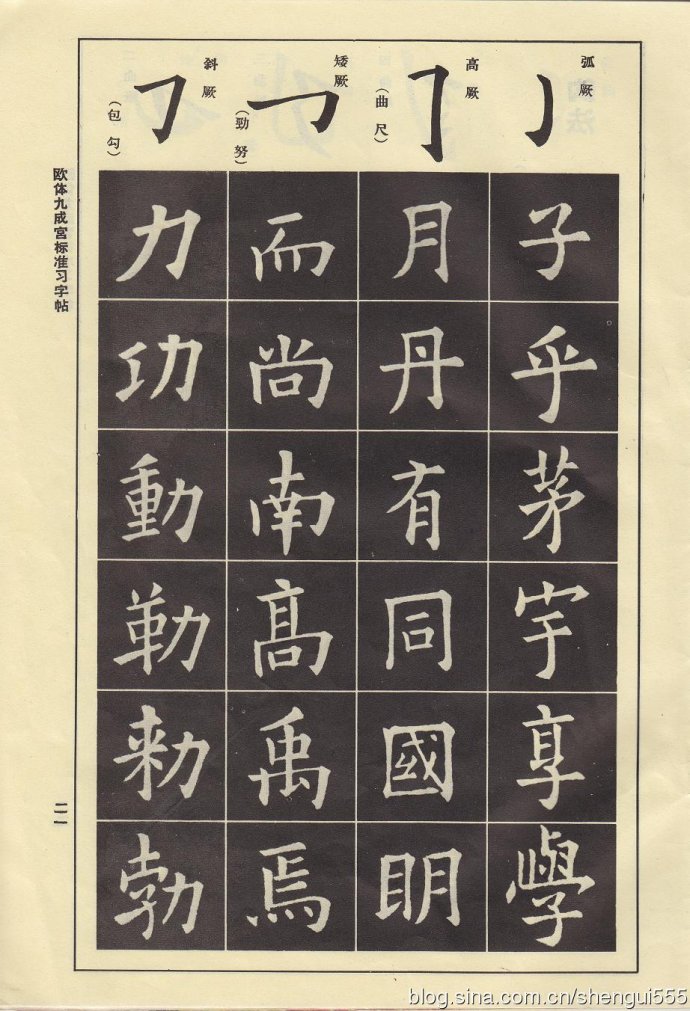 弧厥
子
乎
茅
宇
享
學
高厥
（曲尺）
月
丹
有
同
國
明
矮厥
（勁努）
而
尚
南
高
禹
焉
斜厥
（包勾）
力
功
動
勒
勑
勃
欧体九成宮标准习字帖
二一
blog.sina.com.cn/shengui555